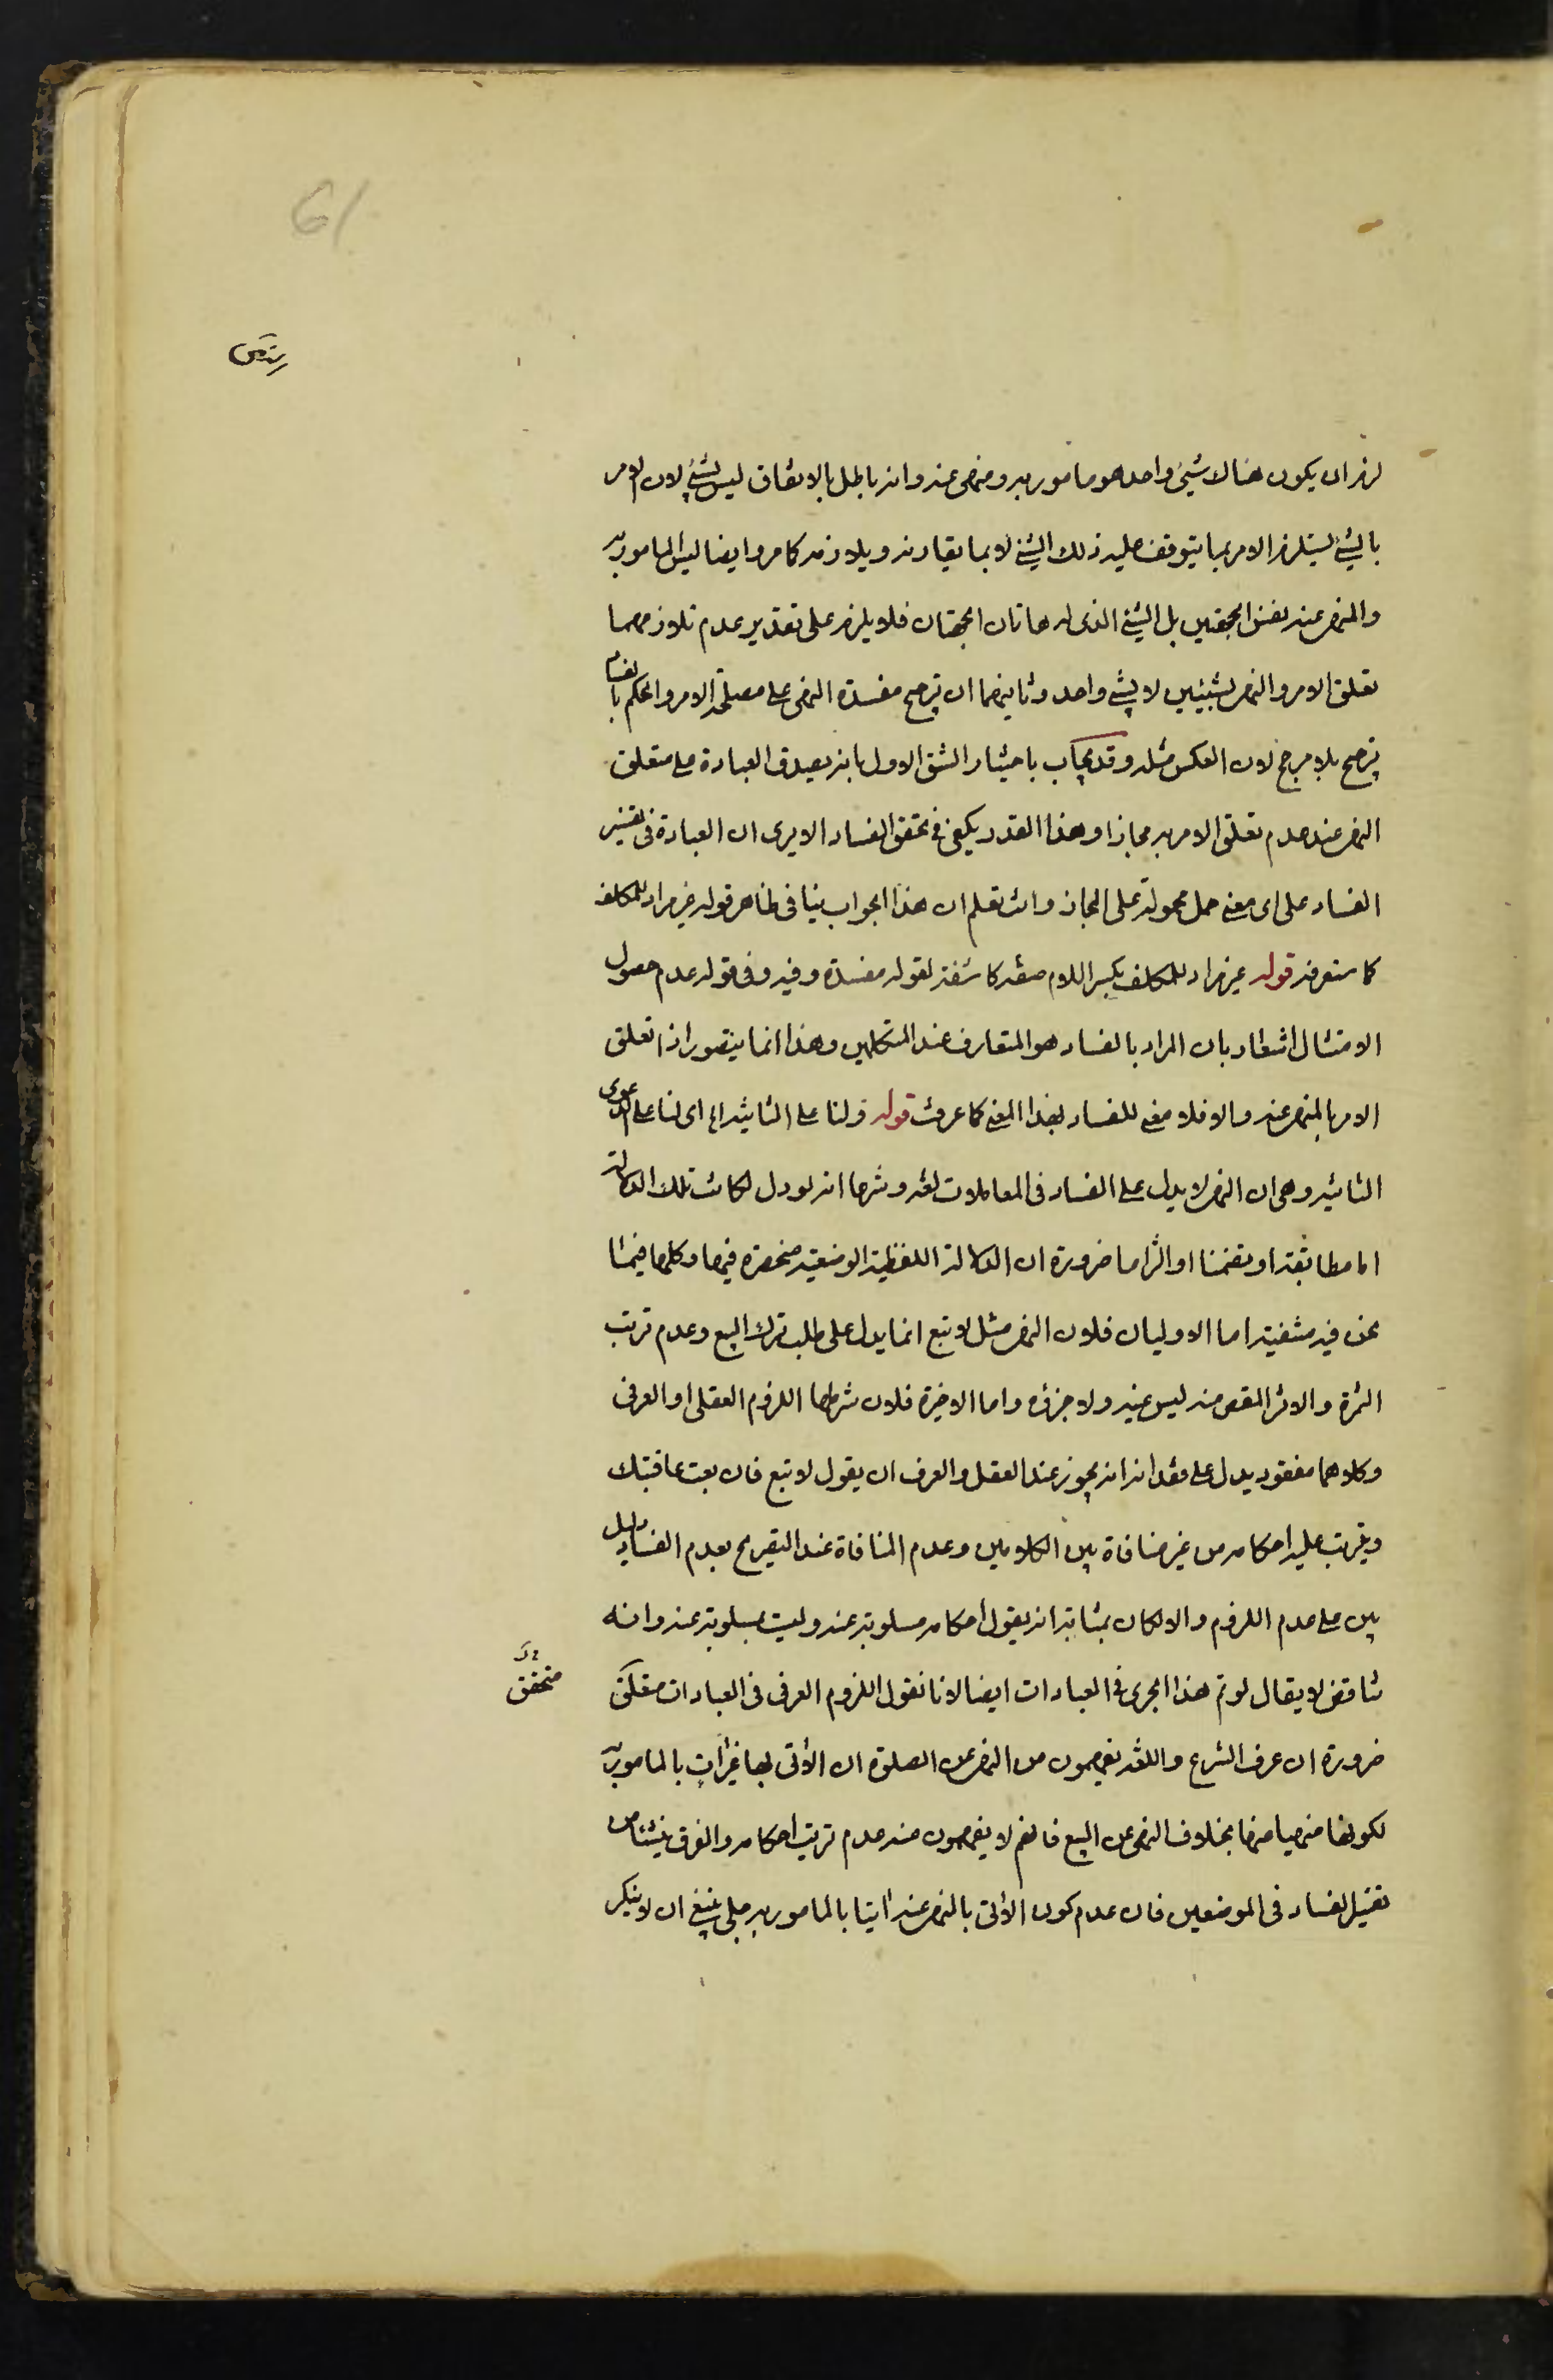 61
لزم ان يكون هناك شيئ واحد هو مامور به ومنهى عنه وانه باطل بالاتفاق ليس بشئ لان الامر
بالشئ يستلزم الامر بما يتوقف عليه ذلك الشئ لا بما يقارنه ويلازمه كما مر وايضا ليس المامور به
والمنهى عنه نفس الجهتين بل الشئ الذى له هاتان الجهتان فلا يلزم على تقدير عدم تلازمهما
تعلق الامر والنهى بشيئين لا بشئ واحد وثانيهما ان ترجيح مفسدة النهى على مصلحة الامر والحكم بالفساد
ترجيح بلا مرجح لان العكس مثله وقد يجاب باختيار الشق الاول بانه يصدق العبادة على متعلق
النهى عند عدم تعلق الامر به مجازا وهذا القدر يكفى فى تحقق الفساد الا يرى ان العبادة فى تفسير
الفساد على اى معنى حمل محمولة على المجاز وانت تعلم ان هذا الجواب ينافى ظاهر قوله غير مراد للمكلف
كما ستعرفه قوله غير مراد للمكلف بكسر اللام صفة كاشفة لقوله مفسدة وفيه وفى قوله عدم حصول
الامتثال اشعار بان المراد بالفساد هو المتعارف عند المتكلمين وهذا انما يتصور اذا تعلق
الامر بالمنهى عنه والا فلا معنى للفساد بهذا المعنى كما عرفت قوله ولنا على الثانية اه اى لنا على الدعوى
الثانية وهى ان النهى لا يدل على الفساد فى المعاملات لغة وشرعا انه لو دل لكانت تلك الدلالة
اما مطابقة او تضمنا او التزاما ضرورة ان الدلالة اللفظية الوضعية منحصرة فيها وكلها فيما
نحن فيه منتفية اما الاوليان فلان النهى مثل لا تبع انما يدل على طلب ترك البيع وعدم ترتب
الثمرة والاثر المقصود منه ليس عينه ولا جزؤه واما الاخيرة فلان شرطها اللزوم العقلى او العرفى
وكلاهما مفقود يدل على فقدانه انه يجوز عند العقل والعرف ان يقول لا تبع فان بعت عاقبتك
ويترتب عليه احكامه من غير منافاة بين الكلامين وعدم المنافاة عند التصريح بعدم الفساد دليل
بين على عدم اللزوم والا لكان بمثابة انه يقول احكامه مسلوبة عنه وليست بمسلوبة عنه وانه
تناقض لا يقال لو تم هذا لجرى فى العبادات ايضا لانا نقول اللزوم العرفى فى العبادات متحقق
متحقق
ضرورة ان عرف الشرع واللغة يفهمون من النهى عن الصلوة ان الآتى بها غير آت بالمامور به
لكونها منهيا عنها بخلاف النهى عن البيع فانهم لا يفهمون منه عدم ترتب احكامه والفرق ينشأ من
تفسير الفساد فى الموضعين فان عدم كون الآتى بالمنهى عنه اتيا بالمامور به جلى ينبغى ان لا ينكر